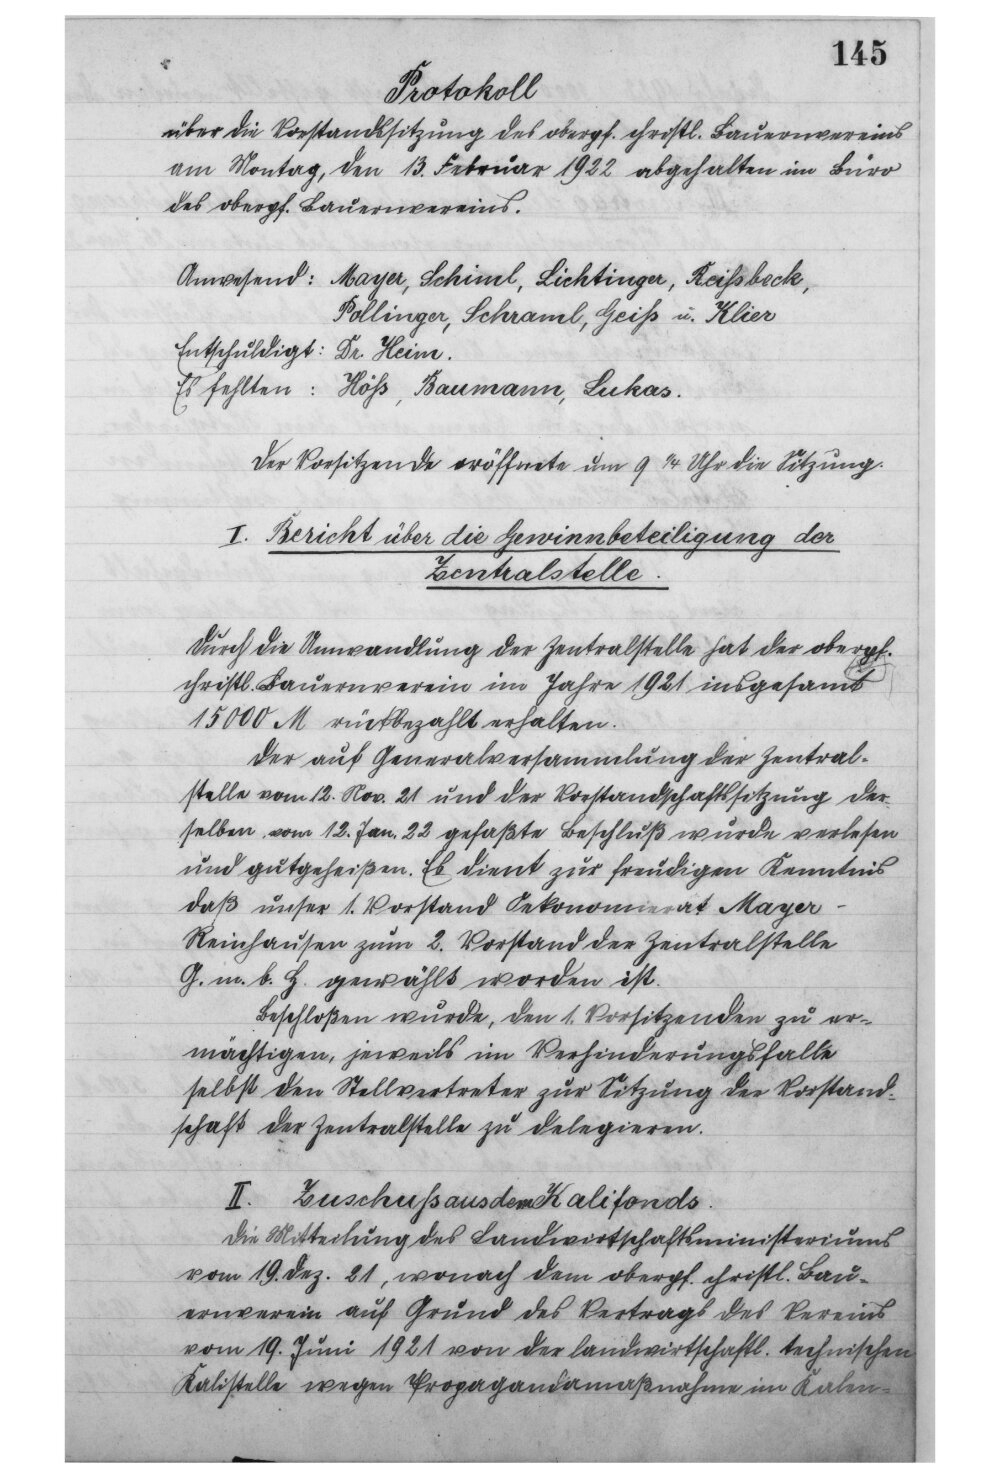 145
Protokoll
über die Vorstandssitzung des oberpf. christl. Bauernvereins
am Montag, den 13. Februar 1922 abgehalten im Büro
des oberpf. Bauernvereins.
Anwesend: Mayer, Schiml, Lichtinger, Reißbeck,
Pollinger, Schraml, Geiß u. Klier
Entschuldigt: Dr. Heim.
Es fehlten : Höß, Baumann, Lukas.
Der Vorsitzende eröffnete um 9 1/4 Uhr die Sitzung.
I. Bericht über die Gewinnbeteiligung der
Zentralstelle.
Durch die Umwandlung der Zentralstelle hat der oberpf.
christl. Bauernverein im Jahre 1921 insgesamt
15000 M rückbezahlt erhalten.
Der auf Generalversammlung der Zentral-
stelle vom 12. Nov. 21 und der Vorstandschaftssitzung der-
selben vom 12. Jan. 22 gefaßte Beschluß wurde verlesen
und gutgeheißen. Es dient zur freudigen Kenntnis
daß unser 1. Vorstand Oekonomierat Mayer-
Reinhausen zum 2. Vorstand der Zentralstelle
G. m. b. H. gewählt worden ist.
Beschloßen wurde, den 1. Vorsitzenden zu er-
mächtigen, jeweils im Verhinderungsfalle
selbst den Stellvertreter zur Sitzung der Vorstand-
schaft der Zentralstelle zu delegieren.
II. Zuschuß aus dem Kalifonds.
Die Mitteilung des Landwirtschaftsministeriums
vom 19. Dez. 21, wonach dem oberpf. christl. Bau-
ernverein auf Grund des Vertrags des Vereins
vom 19. Juni 1921 von der landwirtschaftl. technischen
Kalistelle wegen Propagandamaßnahme im Kalen-